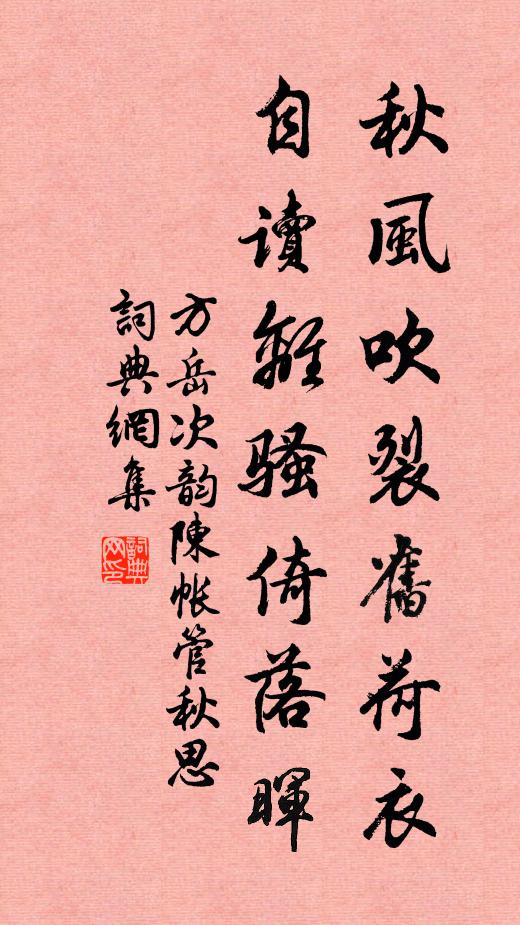 秋風吹裂舊荷衣
自讀離騷倚落暉
方岳次韵陳帐管秋思
詞典網集
詞典網印